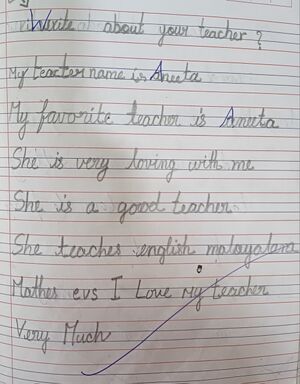 Write about your teacher?
My teacter name is Aneeta
My favorite teacher is Aneeta
She is very loving with me
She is a good teacher
She teaches english malayalam
Mathes evs I Love My teacher
Very Much